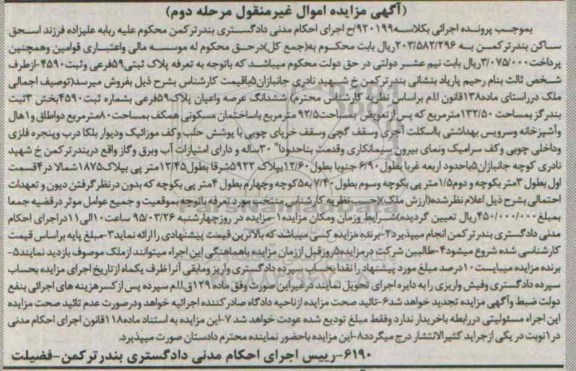 (آگهی مزایده اموال غیرمنقول مرحله دوم)
بموجب پرونده اجرائی بکلاسه ۹۲۰۱۹۹/ح اجرای احکام مدنی دادگستری بندرترکمن محکوم علیه ربابه علیزاده فرزند اسحق
ساکن بندرترکمن به ۲۰۳/۵۸۲/۲۹۶ریال بابت محکوم به(جمع کل)درحق محکوم له موسسه مالی واعتباری قوامین وهمچنین
پرداخت۳/۰۷۵/۰۰۰ریال بابت نیم عشر دولتی در حق دولت محکوم میباشد که باتوجه به تعرفه پلاک ثبتی۵۹فرعی وثبت۴۵۹۰-ازطرف
شخص ثالث بنام رحیم یاریاد بنشانی بندرترکمن خ شهید نادری جانبازان۵باقیمت کارشناس بشرح ذیل بفروش میرسد(توصیف اجمالی
ملک درراستای ماده۱۳۸قانون ا.ا.م براساس نظریه کارشناس محترم) ششدانگ عرصه واعیان پلاک۵۹فرعی بشماره ثبت۴۵۹۰بخش ۳ثبت
بندرگز بمساحت۱۳۲/۵۰مترمربع که پس ازتعریض بمساحت۹۲/۵مترمربع باساختمان مسکونی همکف بمساحت۸۰مترمربع دواطاق و۱هال
وآشپزخانه وسرویس بهداشتی بااسکلت آجری وسقف گچی وسقف خرپای چوبی با پوشش حلب وکف موزائیک ودیوار بلکا درب وپنجره فلزی
وداخلی چوبی وکف سرامیک ونمای بیرون سیمانکاری وقدمت بناحدودا" ۳۰ساله و دارای امتیازات آب وبرق وگاز واقع دربندرترکمن خ شهید
نادری کوچه جانبازان۵باحدود اربعه غربا بطول ۶/۹۰ جنوبا بطول۱۲/۶۰ بپلاک ۵۹۲۲شرقا بطول۱۲/۴۵متر پی بپلاک۱۸۷۵شمالا در۴قسمت
اول بطول ۳متر بکوچه و دوم۱/۵متر پی بکوچه وسوم بطول ۷/۴۰ به۵کوچه وچهارم بطول ۴متر پی بکوچه که بدون درنظر گرفتن دیون و تعهدات
احتمالی بشرح ذیل اعلام نظرشده(ارزش ملک)(حسب نظریه کارشناس منتخب مورد تعرفه باتوجه بموقعیت و جمیع عوامل موثر درقضیه جمعا
بمبلغ۴۵۰/۰۰۰/۰۰۰ریال تعیین گردیده)شرایط وزمان ومکان مزایده۱-مزایده در روزچهارشنبه ۹۵/۰۳/۲۶ ساعت۱۰الی۱۱دراجرای احکام
مدنی دادگستری بندرترکمن انجام میپذیرد۲-برنده مزایده کسی میباشد که بالاترین قیمت پیشنهادی راارائه نماید۳-مبلغ پایه براساس قیمت
کارشناسی شده شروع میشود۴-طالبین شرکت درمزایده۵روزقبل اززمان مزایده باهماهنگی این اجراء میتوانند ازملک موصوف بازدید نمایند۵-
برنده مزایده میبایست۱۰درصد مبلغ مورد پیشنهاد را نقدا بحساب سپرده دادگستری واریز ومابقی آنرا ظرف یکماه ازتاریخ اجرای مزایده بحساب
سپرده دادگستری وفیش واریزی را به دایره اجرای تحویل نمایند درغیراین صورت وفق ماده ۱۲۹ق.ا.ا.م سپرده پس ازکسرهزینه های اجرائی بنفع
دولت ضبط وآگهی مزایده تجدید خواهد شد۶-تائید صحت مزایده ازناحیه دادگاه صادرکننده اجرائیه خواهد ودرصورت عدم تائید صحت مزایده
این اجراء مسئولیتی دررابطه باخریدار ندارد وفقط مبلغ تودیع شده عودت خواهد شد ۷-این مزایده به استناد ماده۱۱۸قانون اجرای احکام مدنی
در۱نوبت در یکی ازجراید کثیرالانتشار درج میگردد۸-این مزایده باحضور نماینده محترم دادستان صورت میپذیرد.
۶۱۹۰-رییس اجرای احکام مدنی دادگستری بندرترکمن-فضیلت